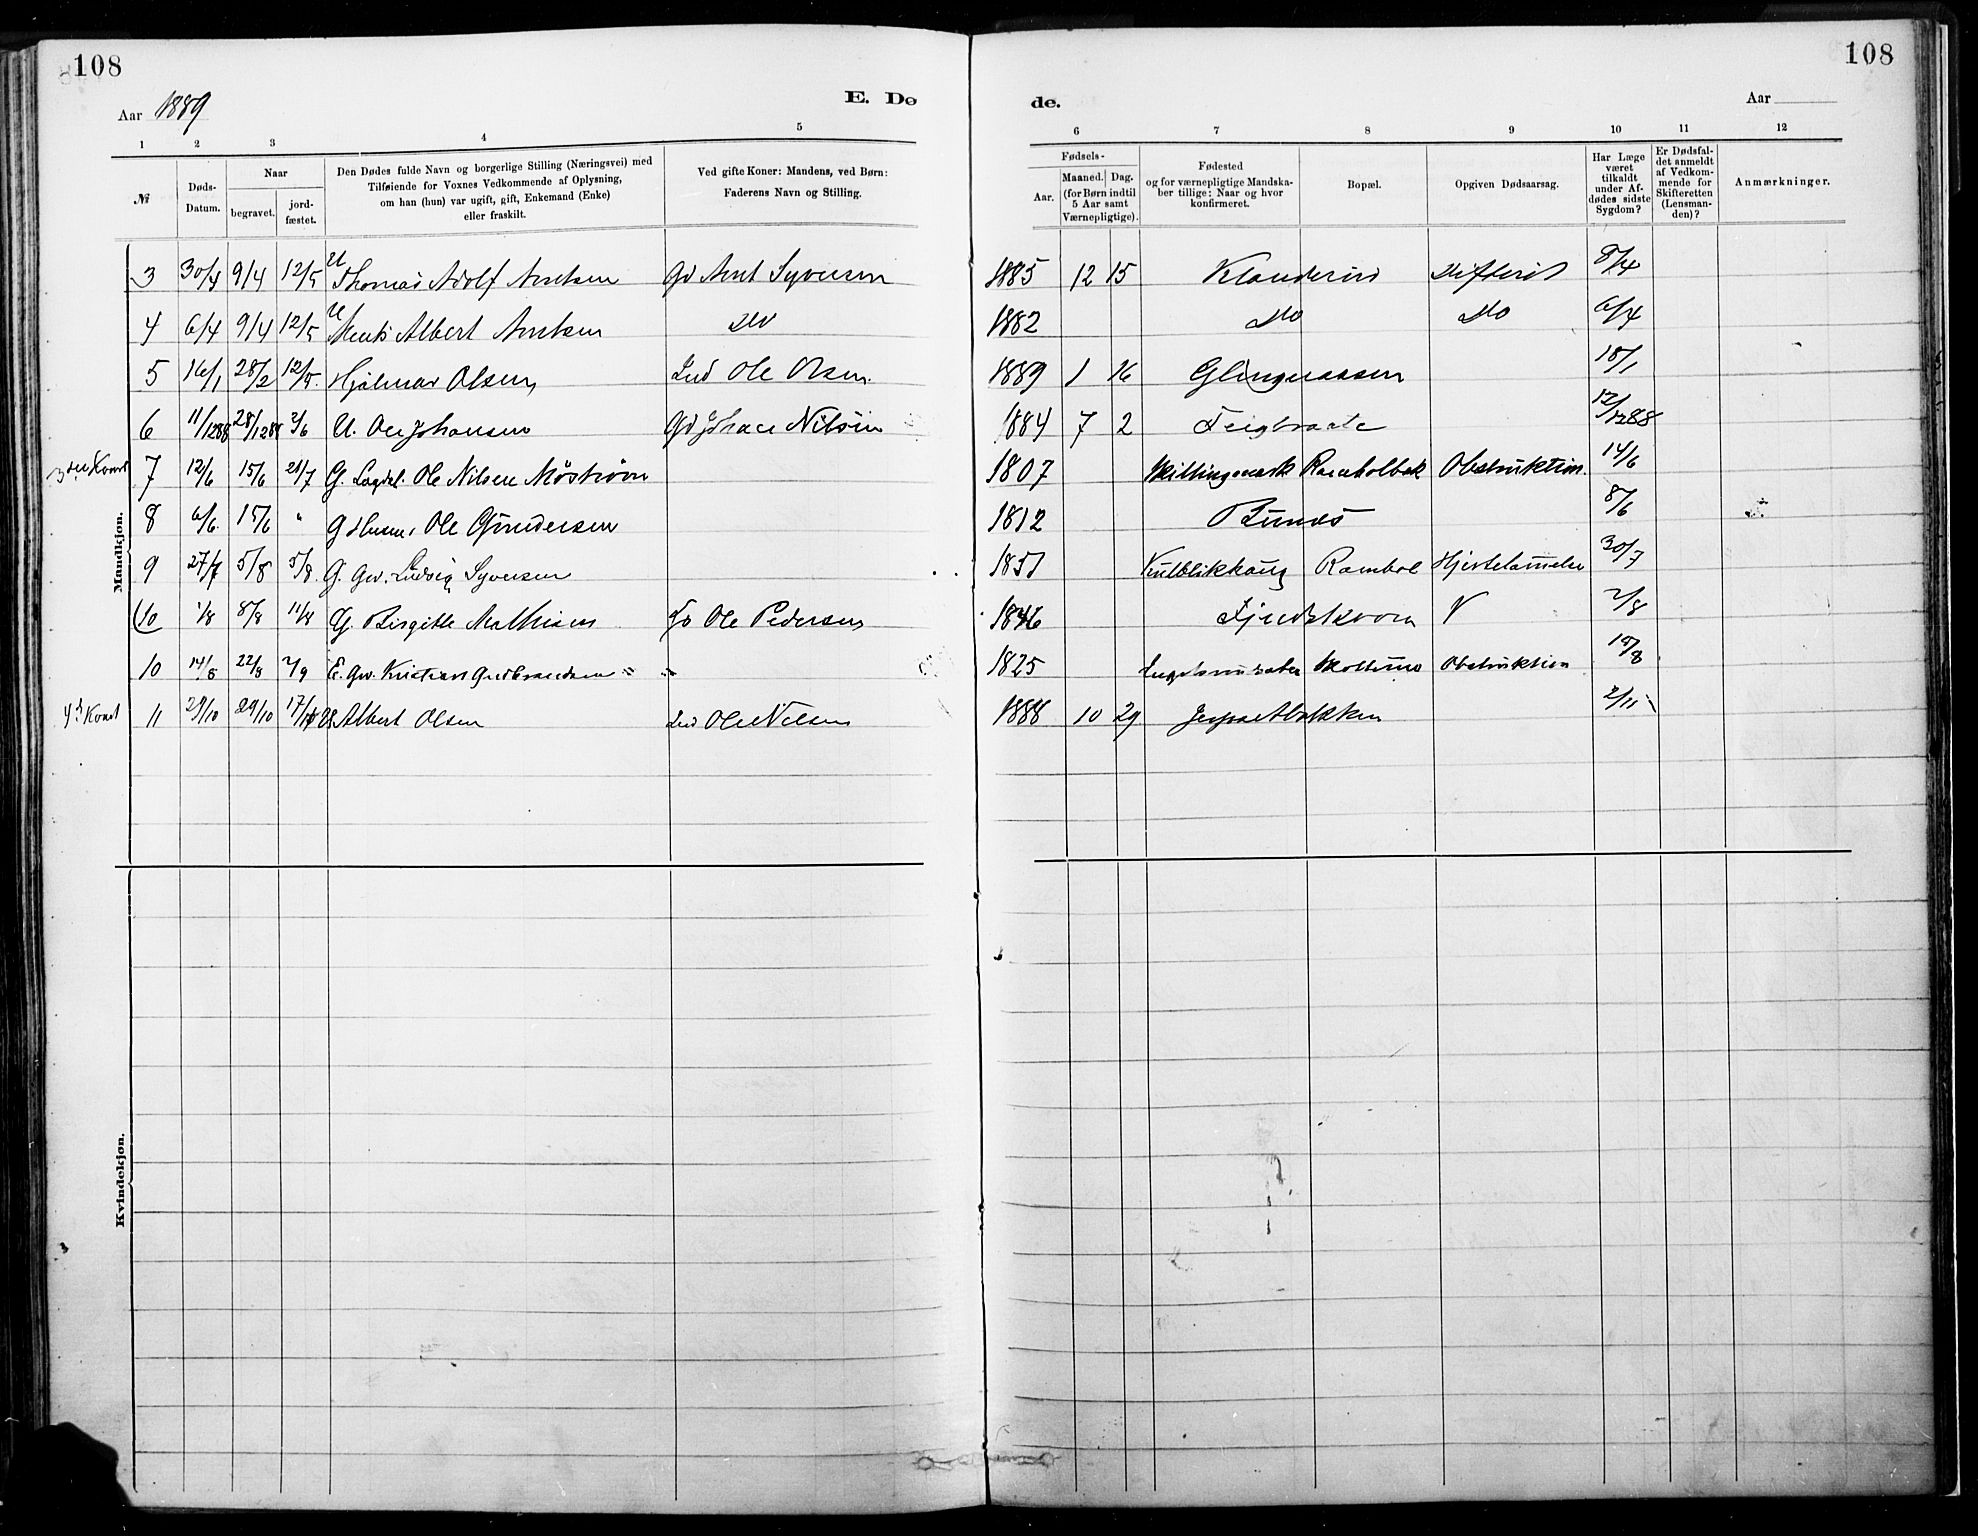 108
108
Aar 1889
E. Dø
de.
Aar
1 2 3 4 5 6 7 8 9 10 11 12
№
Døds-
Datum.
Naar
begravet.
jord-
fæstet.
Den Dødes fulde Navn og borgerlige Stilling (Næringsvei) med
Tilføiende for Voxnes Vedkommende af Oplysning,
om han (hun) var ugift, gift, Enkemand (Enke)
eller fraskilt.
Ved gifte Koner: Mandens, ved Børn:
Faderens Navn og Stilling.
Fødsels-
Aar.
Maaned. Dag.
(for Børn indtil
5 Aar samt
Værnepligtige).
Fødested
og for værnepligtige Mandska-
ber tillige: Naar og hvor
konfirmeret.
Bopæl.
Opgiven Dødsaarsag.
Har Læge
været
tilkaldt
under Af-
dødes sidste
Sygdom?
Er Dødsfal-
det anmeldt
af Vedkom-
mende for
Skifteretten
(Lensman-
den)?
Anmærkninger.
Mandkjøn.
3 30/4 9/4 12/5 U Thomas Adolf Arntsen Gd Arnt Syversen 1885 12 15 Klanderud Difterit 8/4
4 6/4 9/4 12/5 U Albert Arntsen Do 1882 Do Do 6/4
5 16/1 28/2 12/5. Hjalmar Olsen, Ind Ole Olsen. 1889 1 16 18/1
6 11/1288 28/1288 2/6 U. Ole Johansen Gd Johan Nilsen 1884 7 2 12/1288
7 12/6 15/6 21/7 G. Ole Nilsen 1807 Obstruktion. 14/6
8 6/6. 15/6 " G Husm. Ole Gundersen 1812 8/6
9 27/7 5/8 5/8. G. Gv. Ludvig Syversen 1851 30/7
10 1/8 8/8 11/8 G. Birgitte Mathisen Ole Pedersen 1846 2/8
10 14/8 22/8 2/9 E. Gv. Kristian Gudbrandsen " " 1825 Obstruktion
4d Kvart 11 29/10 29/10 Albert Olsen Ind Ole Nilsen 1888 10 29 2/11
Kvindekjøn.